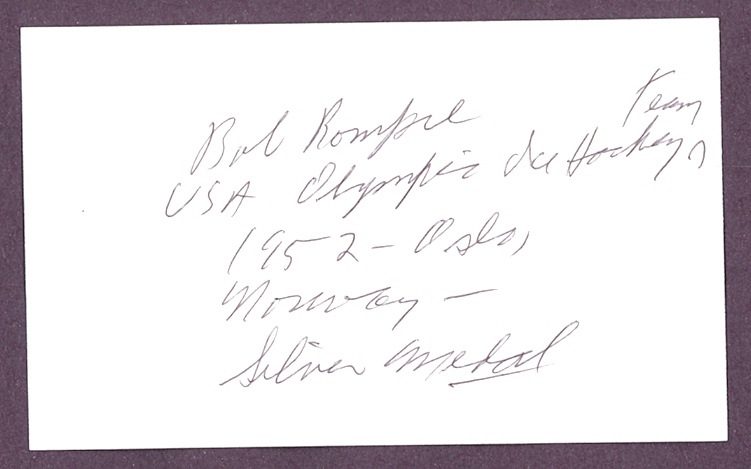 Bob Rompre
USA Olympic Ice Hockey Team,
1952 - Oslo,
Norway -
Silver Medal